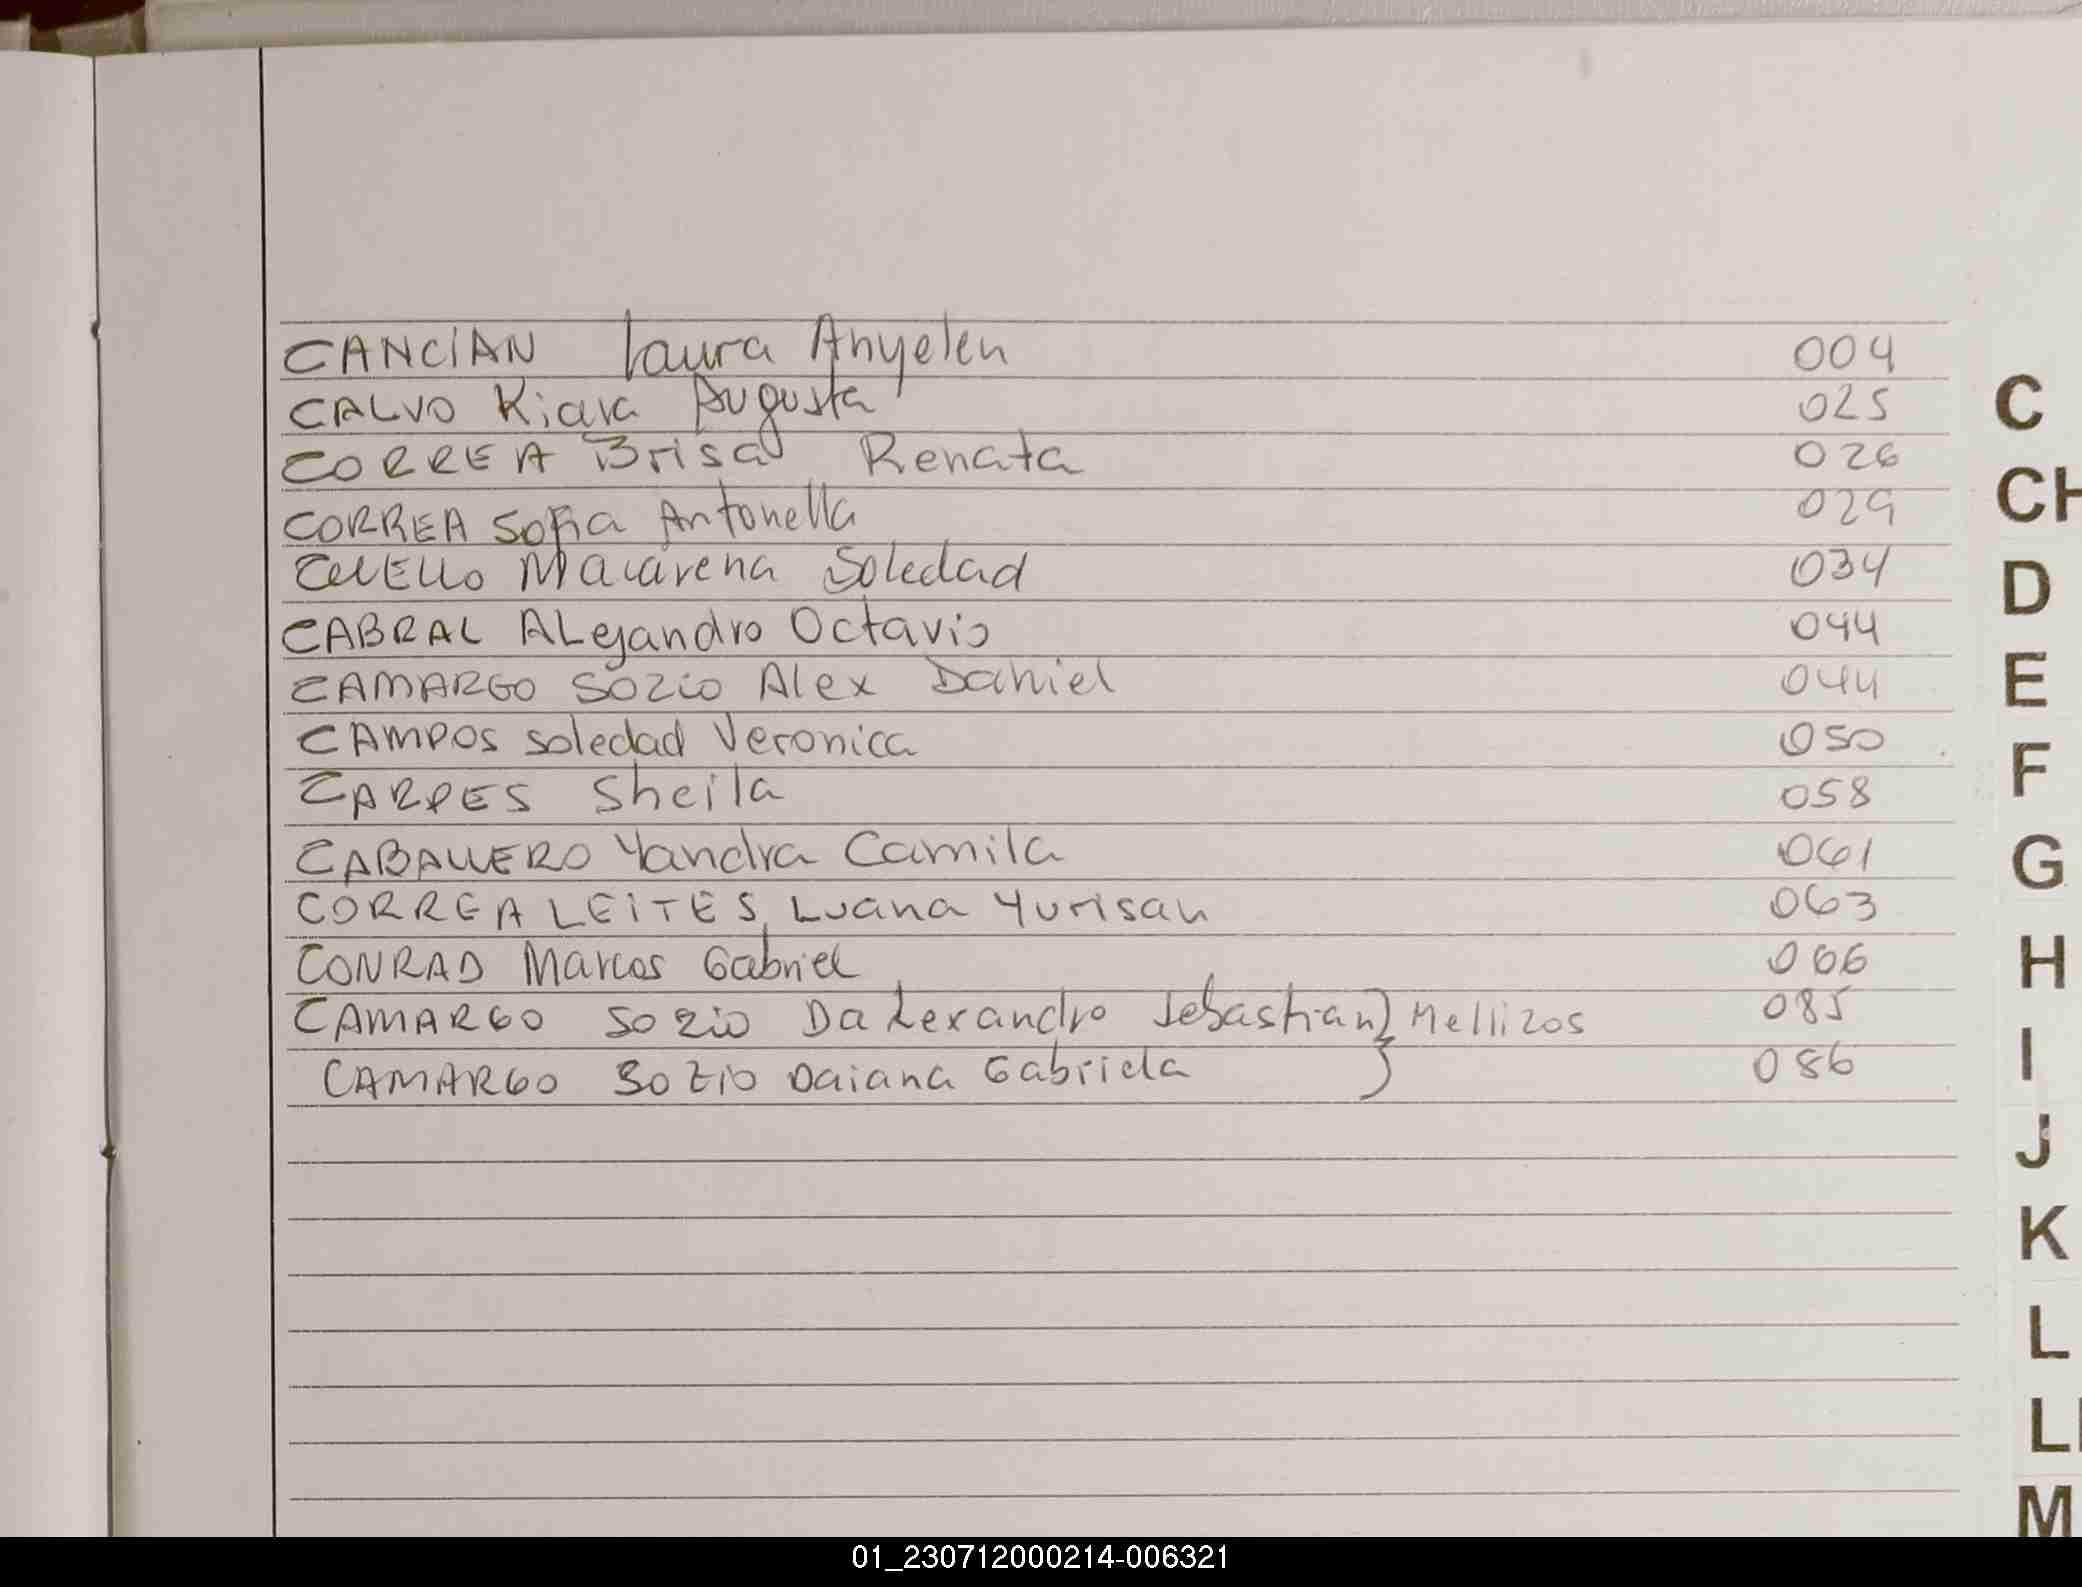 CANCIAN Laura Anyelen 004
CALVO Kiara Augusta 025
CORREA Brisa Renata 026
CORREA Sofia Antonella 029
Macarena Soledad 034
CABRAL ALejandro Octavio 044
CAMARGO SOZIO Alex Daniel 044
CAMPOS Soledad Veronica 050
CARPES Sheila 058
CABALLERO Yandra Camila 061
CORREA LEITES, Luana Yurisan 063
CONRAD Marcos Gabriel 066
CAMARGO SOZIO Dalexandro Sebastian } Mellizos 085
CAMARGO SOZIO Daiana Gabriela } 086
C
CH
D
E
F
G
H
I
J
K
L
LL
M
01_230712000214-006321